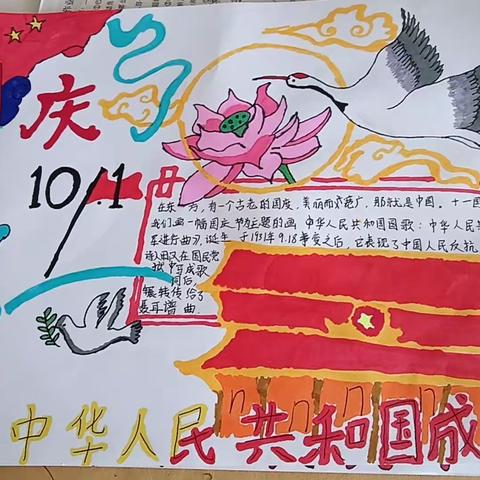 庆
10/.1
在东方,有个古老的国度,美丽而宽广,那就是中国。十一国
我们画一幅国庆节为主题的画,中华人民共和国国歌:中华人民共
军进行曲》,诞生于1931年9.18事变之后,它表现了中国人民反抗
田汉在国民党
狱中写成歌
词后,
辗转传给了
聂耳谱曲.
中华人民共和国成